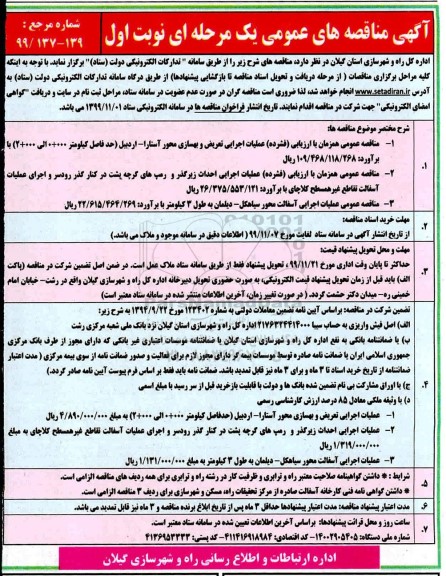 آگهی مناقصه های عمومی یک مرحله ای نوبت اول
شماره مرجع :
۹۹/ ۱۳۷-۱۳۹
اداره کل راه و شهرسازی استان گیلان در نظر دارد، مناقصه های شرح زیر را از طریق سامانه " تدارکات الکترونیکی دولت (ستاد)" برگزار نماید. با توجه به اینکه
کلیه مراحل برگزاری مناقصات ( از مرحله دریافت و تحویل اسناد مناقصه تا بازگشایی پیشنهادها) از طریق درگاه سامانه تدارکات الکترونیکی دولت (ستاد) به
آدرس www.setadiran.ir انجام خواهد شد، لذا ضروری است مناقصه گران در صورت عدم عضویت در سامانه ستاد، مراحل ثبت نام در سایت و دریافت "گواهی
امضای الکترونیکی" جهت شرکت در مناقصه اقدام نمایند. تاریخ انتشار فراخوان مناقصه ها در سامانه الکترونیکی ستاد ۱۳۹۹/۱۱/۰۱ می باشد.
شرح مختصر موضوع مناقصه ها:
۱.
۱- مناقصه عمومی همزمان با ارزیابی (فشرده) عملیات اجرایی تعریض و بهسازی محور آستارا- اردبیل (حد فاصل کیلومتر ۰۰۰+۰ الی ۰۰۰+۲) با
برآورد: ۱۰۹/۴۶۸/۱۱۸/۲۶۸ ریال
۲- مناقصه عمومی همزمان با ارزیابی (فشرده) عملیات اجرایی احداث زیرگذر و رمپ های گرچه پشت در کنار گذر رودسر و اجرای عملیات
آسفالت تقاطع غیرهمسطح کلاچای با برآورد: ۲۶/۳۷۵/۵۵۳/۱۲۱ ریال
۳- مناقصه عمومی عملیات اجرایی آسفالت محور سیاهکل- دیلمان به طول ۳ کیلومتر با برآورد: ۲۲/۶۱۵/۴۶۴/۲۶۹ ریال
۲.
مهلت خرید اسناد مناقصه:
از تاریخ انتشار آگهی در سامانه ستاد لغایت مورخ ۹۹/۱۱/۰۷ ( اطلاعات دقیق در سامانه موجود و ملاک می باشد).
مهلت و محل تحویل پیشنهاد قیمت:
۳.
حداکثر تا پایان وقت اداری مورخ ۹۹/۱۱/۲۱ ، تحویل پیشنهاد فقط از طریق سامانه ستاد ملاک عمل است. در ضمن اصل تضمین شرکت در مناقصه (پاکت
الف) باید قبل از زمان تحویل پیشنهاد قیمت الکترونیکی، به صورت حضوری تحویل دبیرخانه اداره کل راه و شهرسازی گیلان واقع در رشت- خیابان امام
خمینی ره- میدان دکتر حشمت گردد. ( در صورت تغییر زمان، آخرین اطلاعات منتشر شده در سامانه ستاد معتبر است)
تضمین شرکت در مناقصه: براساس آیین نامه تضمین معاملات دولتی به شماره ۱۲۳۴۰۲ مورخ ۱۳۹۴/۹/۲۲ به شرح زیر:
۴.
الف) اصل فیش واریزی به حساب سیبا ۲۱۷۶۳۲۴۴۱۴۰۰۰ اداره کل راه و شهرسازی استان گیلان نزد بانک ملی شعبه مرکزی رشت
ب) یا ضمانتنامه بانکی به نفع اداره کل راه و شهرسازی استان گیلان یا ضمانتنامه موسسات اعتباری غیر بانکی که دارای مجوز از طرف بانک مرکزی
جمهوری اسلامی ایران یا ضمانت نامه صادره توسط موسسات بیمه گر دارای مجوز لازم برای فعالیت و صدور ضمانت نامه از سوی بیمه مرکزی ( مدت اعتبار
ضمانتنامه از تاریخ خرید اسناد تا ۳ ماه و برای ۳ ماه نیز قابل تمدید باشد. ضمانت نامه باید فقط بر اساس فرم پیوست آیین نامه صادر گردد).
ج) یا اوراق مشارکت بی نام تضمین شده بانک ها و دولت با قابلیت بازخرید قبل از سر رسید با مبلغ اسمی
د) یا وثیقه ملکی معادل ۸۵ درصد ارزش کارشناسی رسمی
۱- عملیات اجرایی تعریض و بهسازی محور آستارا- اردبیل (حدفاصل کیلومتر ۰۰۰+۰ الی ۰۰۰+۲) به مبلغ ۴/۸۹۰/۰۰۰/۰۰۰ ریال
۲- عملیات اجرایی احداث زیرگذر و رمپ های گرچه پشت در کنار گذر رودسر و اجرای عملیات آسفالت تقاطع غیرهمسطح کلاچای به مبلغ
۱/۳۱۹/۰۰۰/۰۰۰ ریال
۳- عملیات اجرایی آسفالت محور سیاهکل- دیلمان به طول ۳ کیلومتر به مبلغ ۱/۱۳۱/۰۰۰/۰۰۰ ریال
۵.
شرایط : * داشتن گواهینامه صلاحیت معتبر راه و ترابری و ظرفیت کار در رشته راه و ترابری برای همه ردیف های مناقصه الزامی است.
* داشتن گواهی نامه فنی کارخانه آسفالت صادره از مرکز تحقیقات راه، مسکن و شهرسازی برای ردیف ۳ مناقصه الزامی است.
۶.
مدت اعتبار پیشنهاد مناقصه: مدت اعتبار پیشنهادها حداقل ۳ ماه پس از تاریخ ابلاغ برنده مناقصه و ۳ ماه نیز قابل تمدید می باشد.
۷.
ساعت روز و محل قرائت پیشنهادها: براساس آخرین اطلاعات تعیین شده در سامانه ستاد معتبر است.
شماره ملی دستگاه: ۱۴۰۰۲۹۰۵۴۰۵- کد اقتصادی: ۴۱۱۴۱۶۹۱۸۹۸۴- کد پستی: ۴۱۳۶۹۵۳۳۳۳
اداره ارتباطات و اطلاع رسانی راه و شهرسازی گیلان